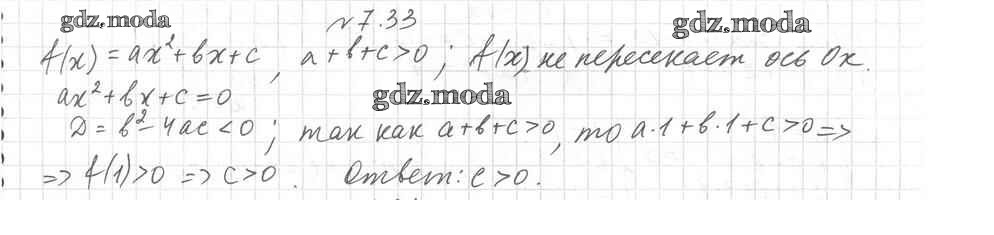 gdz.moda №7.33 gdz.moda
f(x) = ax²+bx+c, a+b+c>0; f(x) не пересекает ось Ox.
ax²+bx+c=0 gdz.moda
D = b²-4ac<0; так как a+b+c>0, то a·1+b·1+c>0 =>
=> f(1)>0 => c>0. Ответ: c>0.